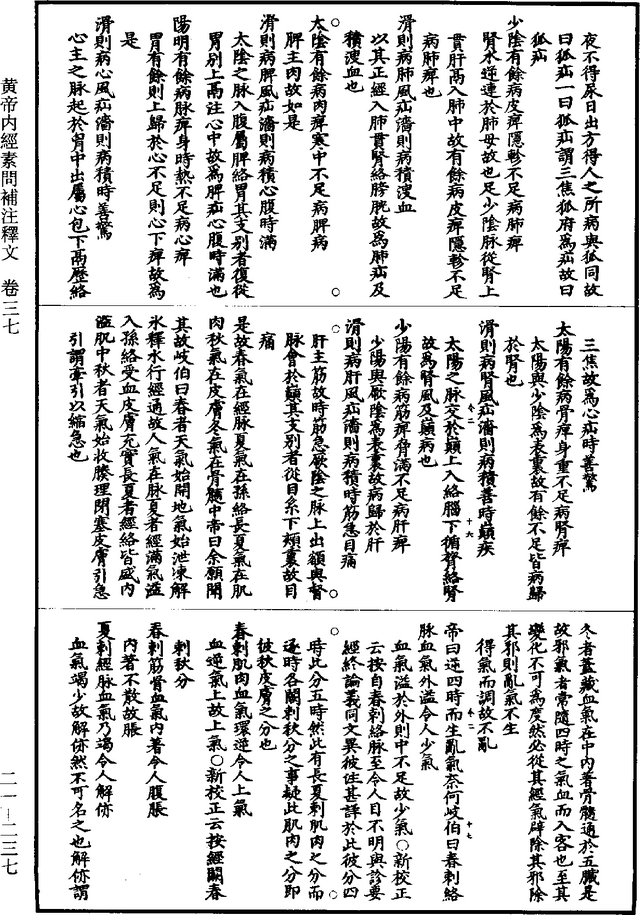 夜不得尿日出方得人之所病與狐同故
曰狐疝一曰狐疝謂三焦狐府爲疝故曰
狐疝
少陰有餘病皮痺隱軫不足病肺痺
腎水逆連於肺母故也足少陰脉從腎上
貫肝鬲入肺中故有餘病皮痺隱軫不足
病肺痺也
滑則病肺風疝濇則病積溲血
以其正經入肺貫腎絡膀胱故爲肺疝及
積溲血也
太陰有餘病肉痺寒中不足病脾痺
脾主肉故如是
滑則病脾風疝濇則病積心腹時滿
太陰之脉入腹屬脾絡胃其支別者復從
胃別上鬲注心中故爲脾疝心腹時滿也
陽明有餘病脉痺身時熱不足病心痺
胃有餘則上歸於心不足則心下痺故爲
是
滑則病心風疝濇則病積時善驚
心主之脉起於胷中出屬心包下鬲歷絡
三焦故爲心疝時善驚
太陽有餘病骨痺身重不足病腎痺
太陽與少陰爲表裏故有餘不足皆病歸
於腎也
滑則病腎風疝濇則病積善時巔疾
太陽之脉交於巔上入絡腦下循膂絡腎
故爲腎風及巔病也
少陽有餘病筋痺脅滿不足病肝痺
少陽與厥陰爲表裏故病歸於肝
滑則病肝風疝濇則病積時筋急目痛
肝主筋故時筋急厥陰之脉上出額與督
脉會於巔其支別者從目系下頰裏故目
痛
是故春氣在經脉夏氣在孫絡長夏氣在肌
肉秋氣在皮膚冬氣在骨髓中帝曰余願聞
其故岐伯曰春者天氣始開地氣始泄凍解
冰釋水行經通故人氣在脉夏者經滿氣溢
入孫絡受血皮膚充實長夏者經絡皆盛内
溢肌中秋者天氣始收腠理閉塞皮膚引急
引謂牽引以縮急也
冬者蓋藏血氣在中内著骨髓通於五臟是
故邪氣者常隨四時之氣血而入客也至其
變化不可爲度然必從其經氣辟除其邪除
其邪則亂氣不生
得氣而調故不亂
帝曰逆四時而生亂氣奈何岐伯曰春刺絡
脉血氣外溢令人少氣
血氣溢於外則中不足故少氣○新校正
云按自春刺絡脉至令人目不明與診要
經終論義同文異彼注甚詳於此彼分四
時此分五時然此有長夏刺肌肉之分而
逐時各闕刺秋分之事疑此肌肉之分即
彼秋皮膚之分也
春刺肌肉血氣環逆令人上氣
血逆氣上故上氣○新校正云按經闕春
刺秋分
春刺筋骨血氣内著令人腹脹
内著不散故脹
夏刺經脉血氣乃竭令人解㑊
血氣竭少故解㑊然不可名之也解㑊謂
黄帝内經素問補注釋文　卷三七
二一—二三七